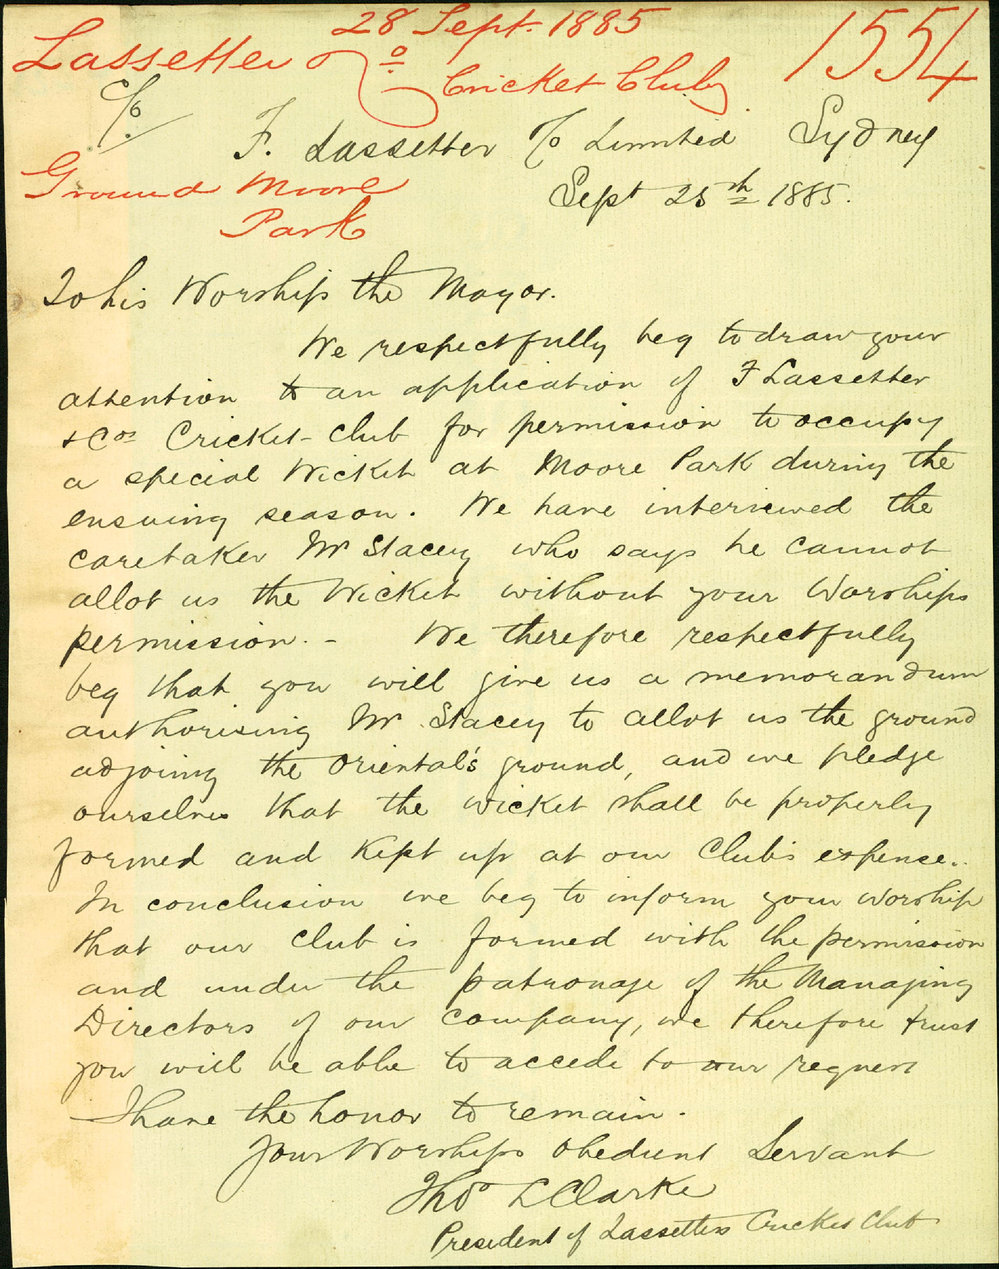 28 Sept. 1885
1554
Lassetter & Co.
Cricket Club
C/o.
F. Lassetter & Co Limited Sydney
Ground Moore
Park
Sept 25th 1885.
To his Worship the Mayor.
We respectfully beg to draw your
attention to an application of F Lassetter
& Cos Cricket-club for permission to occupy
a special Wicket at Moore Park during the
ensuing season. We have interviewed the
caretaker Mr Stacey who says he cannot
allot us the Wicket without your Worships
permission. - We therefore respectfully
beg that you will give us a memorandum
authorising Mr Stacey to allot us the ground
adjoining the Oriental's ground, and we pledge
ourselves that the wicket shall be properly
formed and kept up at our Club's expense.
In conclusion we beg to inform your Worship
that our Club is formed with the permission
and under the patronage of the Managing
Directors of our Company, we therefore trust
you will be able to accede to our request
I have the honor to remain.
Your Worships obedient Servant
Thos L Clarke
President of Lassetters Cricket Club